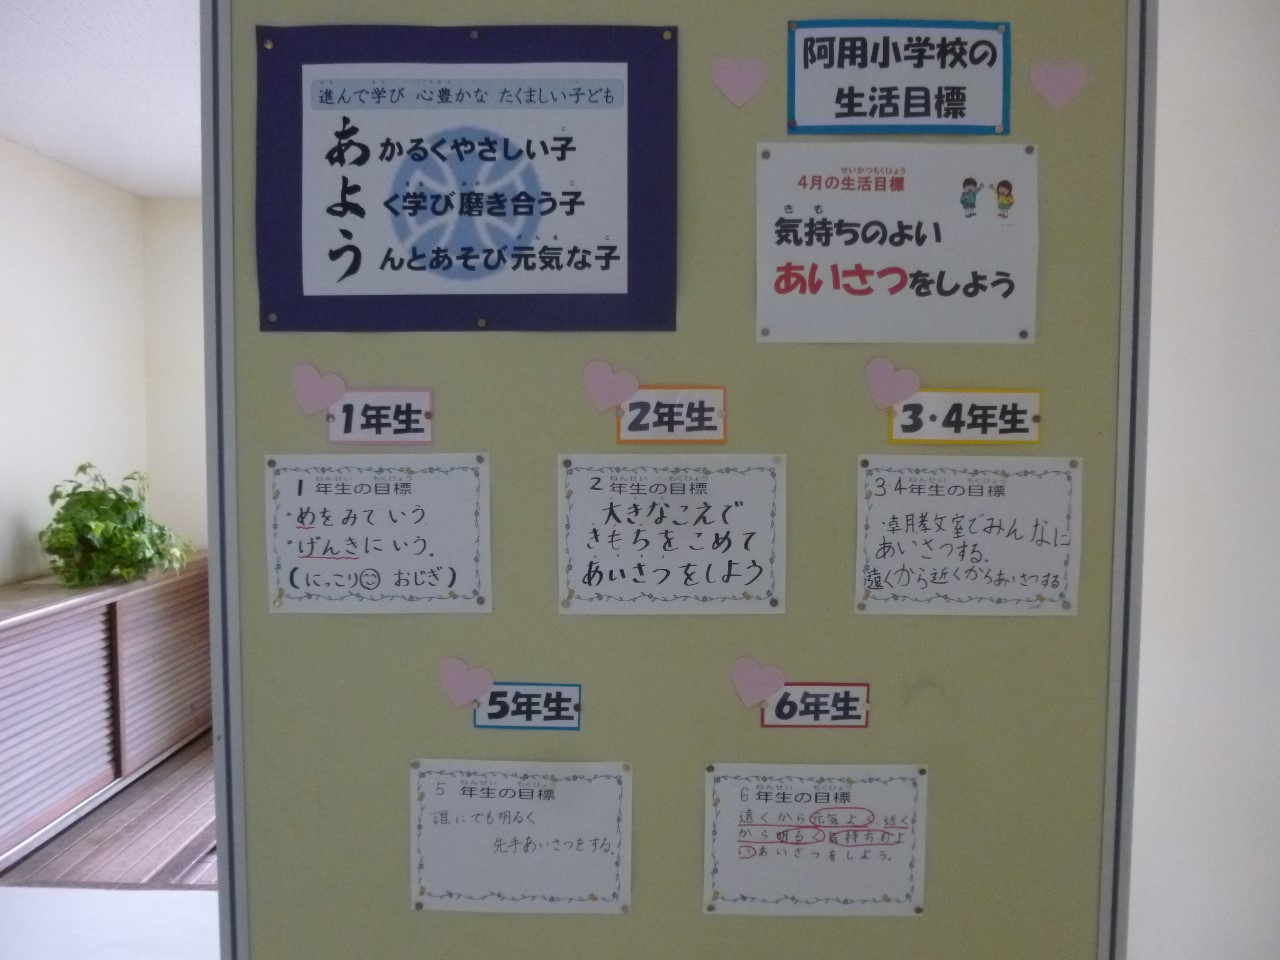 進んで学び 心豊かな たくましい子ども
あかるくやさしい子
よく学び磨き合う子
うんとあそび元気な子
阿用小学校の
生活目標
4月の生活目標
気持ちのよい
あいさつをしよう
1年生
1年生の目標
・めをみていう
・げんきにいう。
(にっこり おじぎ)
2年生
2年生の目標
大きなこえで
きもちをこめて
あいさつをしよう
3・4年生
3・4年生の目標
教室でみんなに
あいさつする。
遠くから近くからあいさつする
5年生
5年生の目標
誰にでも明るく
先手あいさつをする。
6年生
6年生の目標
遠くから元気よく、近く
から明るく気持ちのよ
いあいさつをしよう。